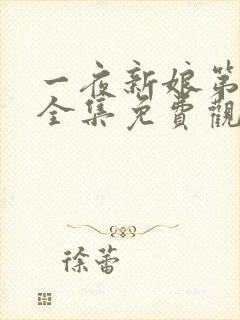 一夜新娘第
全集免費觀
徐蕾